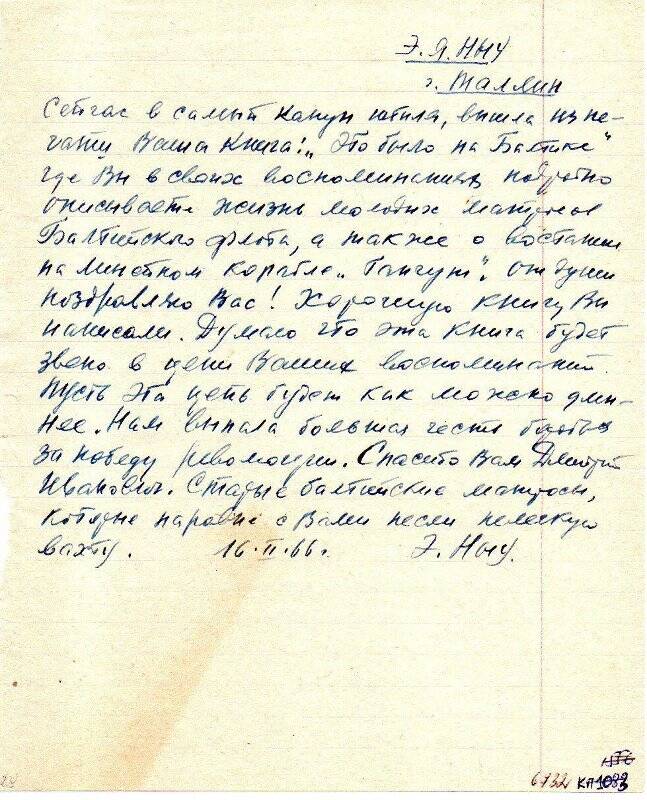 Э. Я. Ныу
г. Таллин
Сейчас в самый канун юбиля, вышла из пе-
чати Ваша книга! „Это было на Балтике"
где Вы в своих воспоминаниях подробно
описываете жизнь молодых матросов
Балтийского флота, а также о востании
на линейном корабле „Гангут". От души
поздравляю Вас! Хорошую книгу Вы
написали. Думаю что эта книга будет
звено в цепи Ваших воспоминаний.
Пусть эта цепь будет как можно длин-
нее. Нам выпала большая честь бороться
за победу революции. Спасибо Вам Дмитрий
Иванович. Старые балтийские матросы,
которые наровне с Вами несли нелегкую
вахту. 16.II.66г. Э. Ныу.
6732 КП